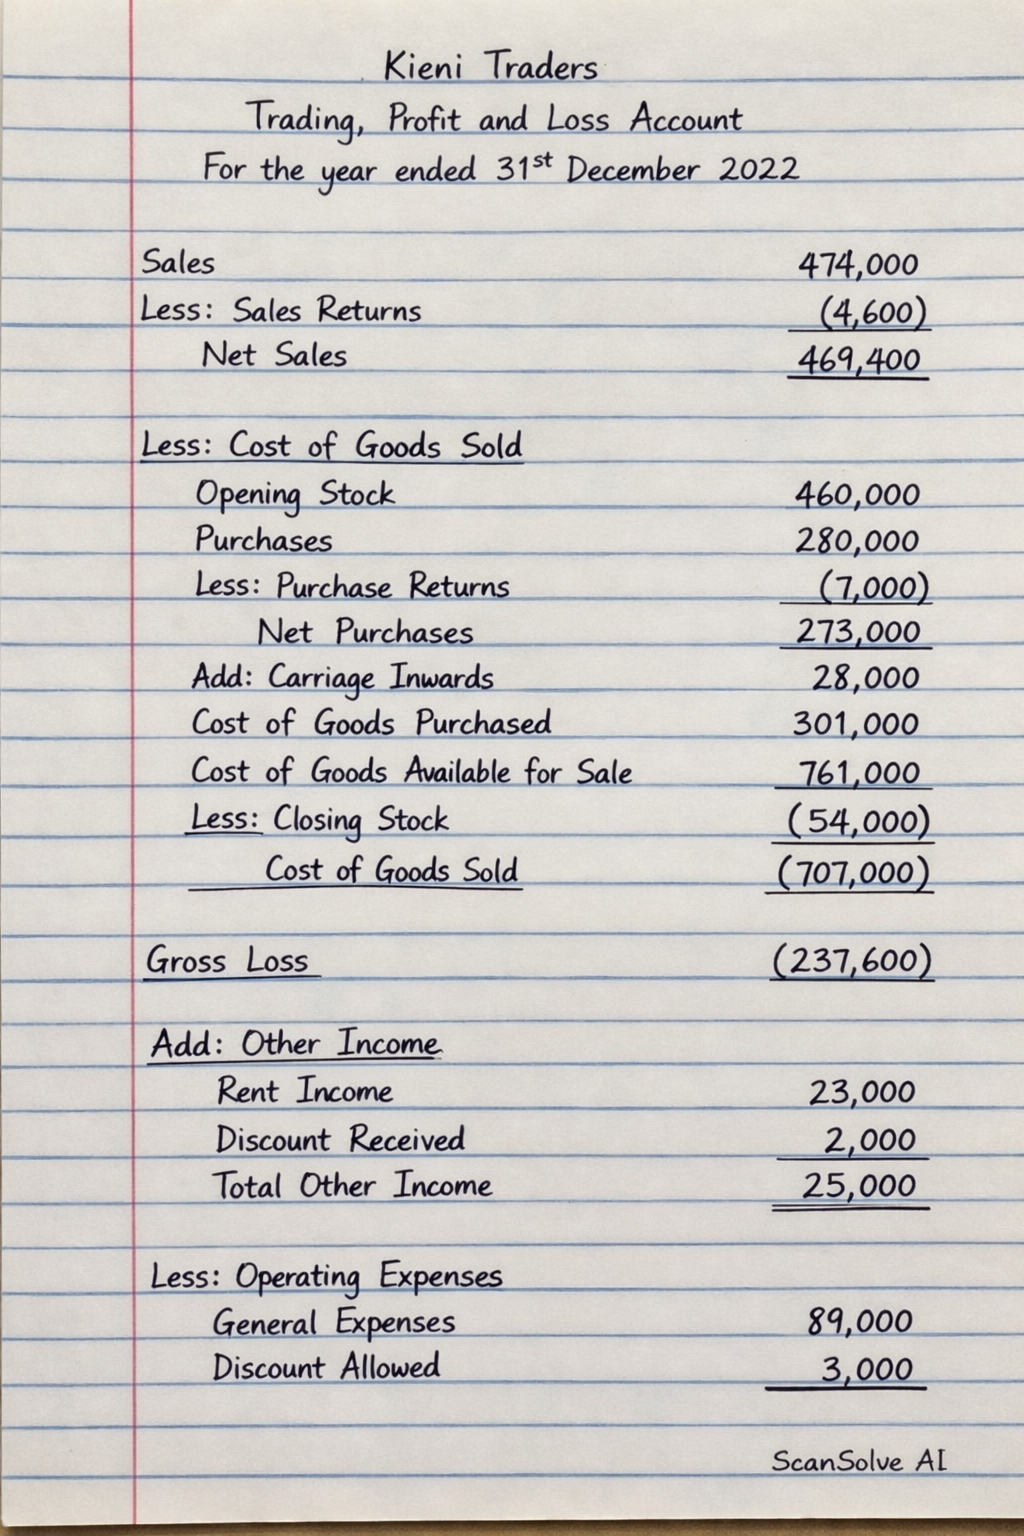 Kieni Traders
Trading, Profit and Loss Account
For the year ended 31st December 2022
Sales 474,000
Less: Sales Returns (4,600)
Net Sales 469,400
Less: Cost of Goods Sold
Opening Stock 460,000
Purchases 280,000
Less: Purchase Returns (7,000)
Net Purchases 273,000
Add: Carriage Inwards 28,000
Cost of Goods Purchased 301,000
Cost of Goods Available for Sale 761,000
Less: Closing Stock (54,000)
Cost of Goods Sold (707,000)
Gross Loss (237,600)
Add: Other Income
Rent Income 23,000
Discount Received 2,000
Total Other Income 25,000
Less: Operating Expenses
General Expenses 89,000
Discount Allowed 3,000
ScanSolve AI